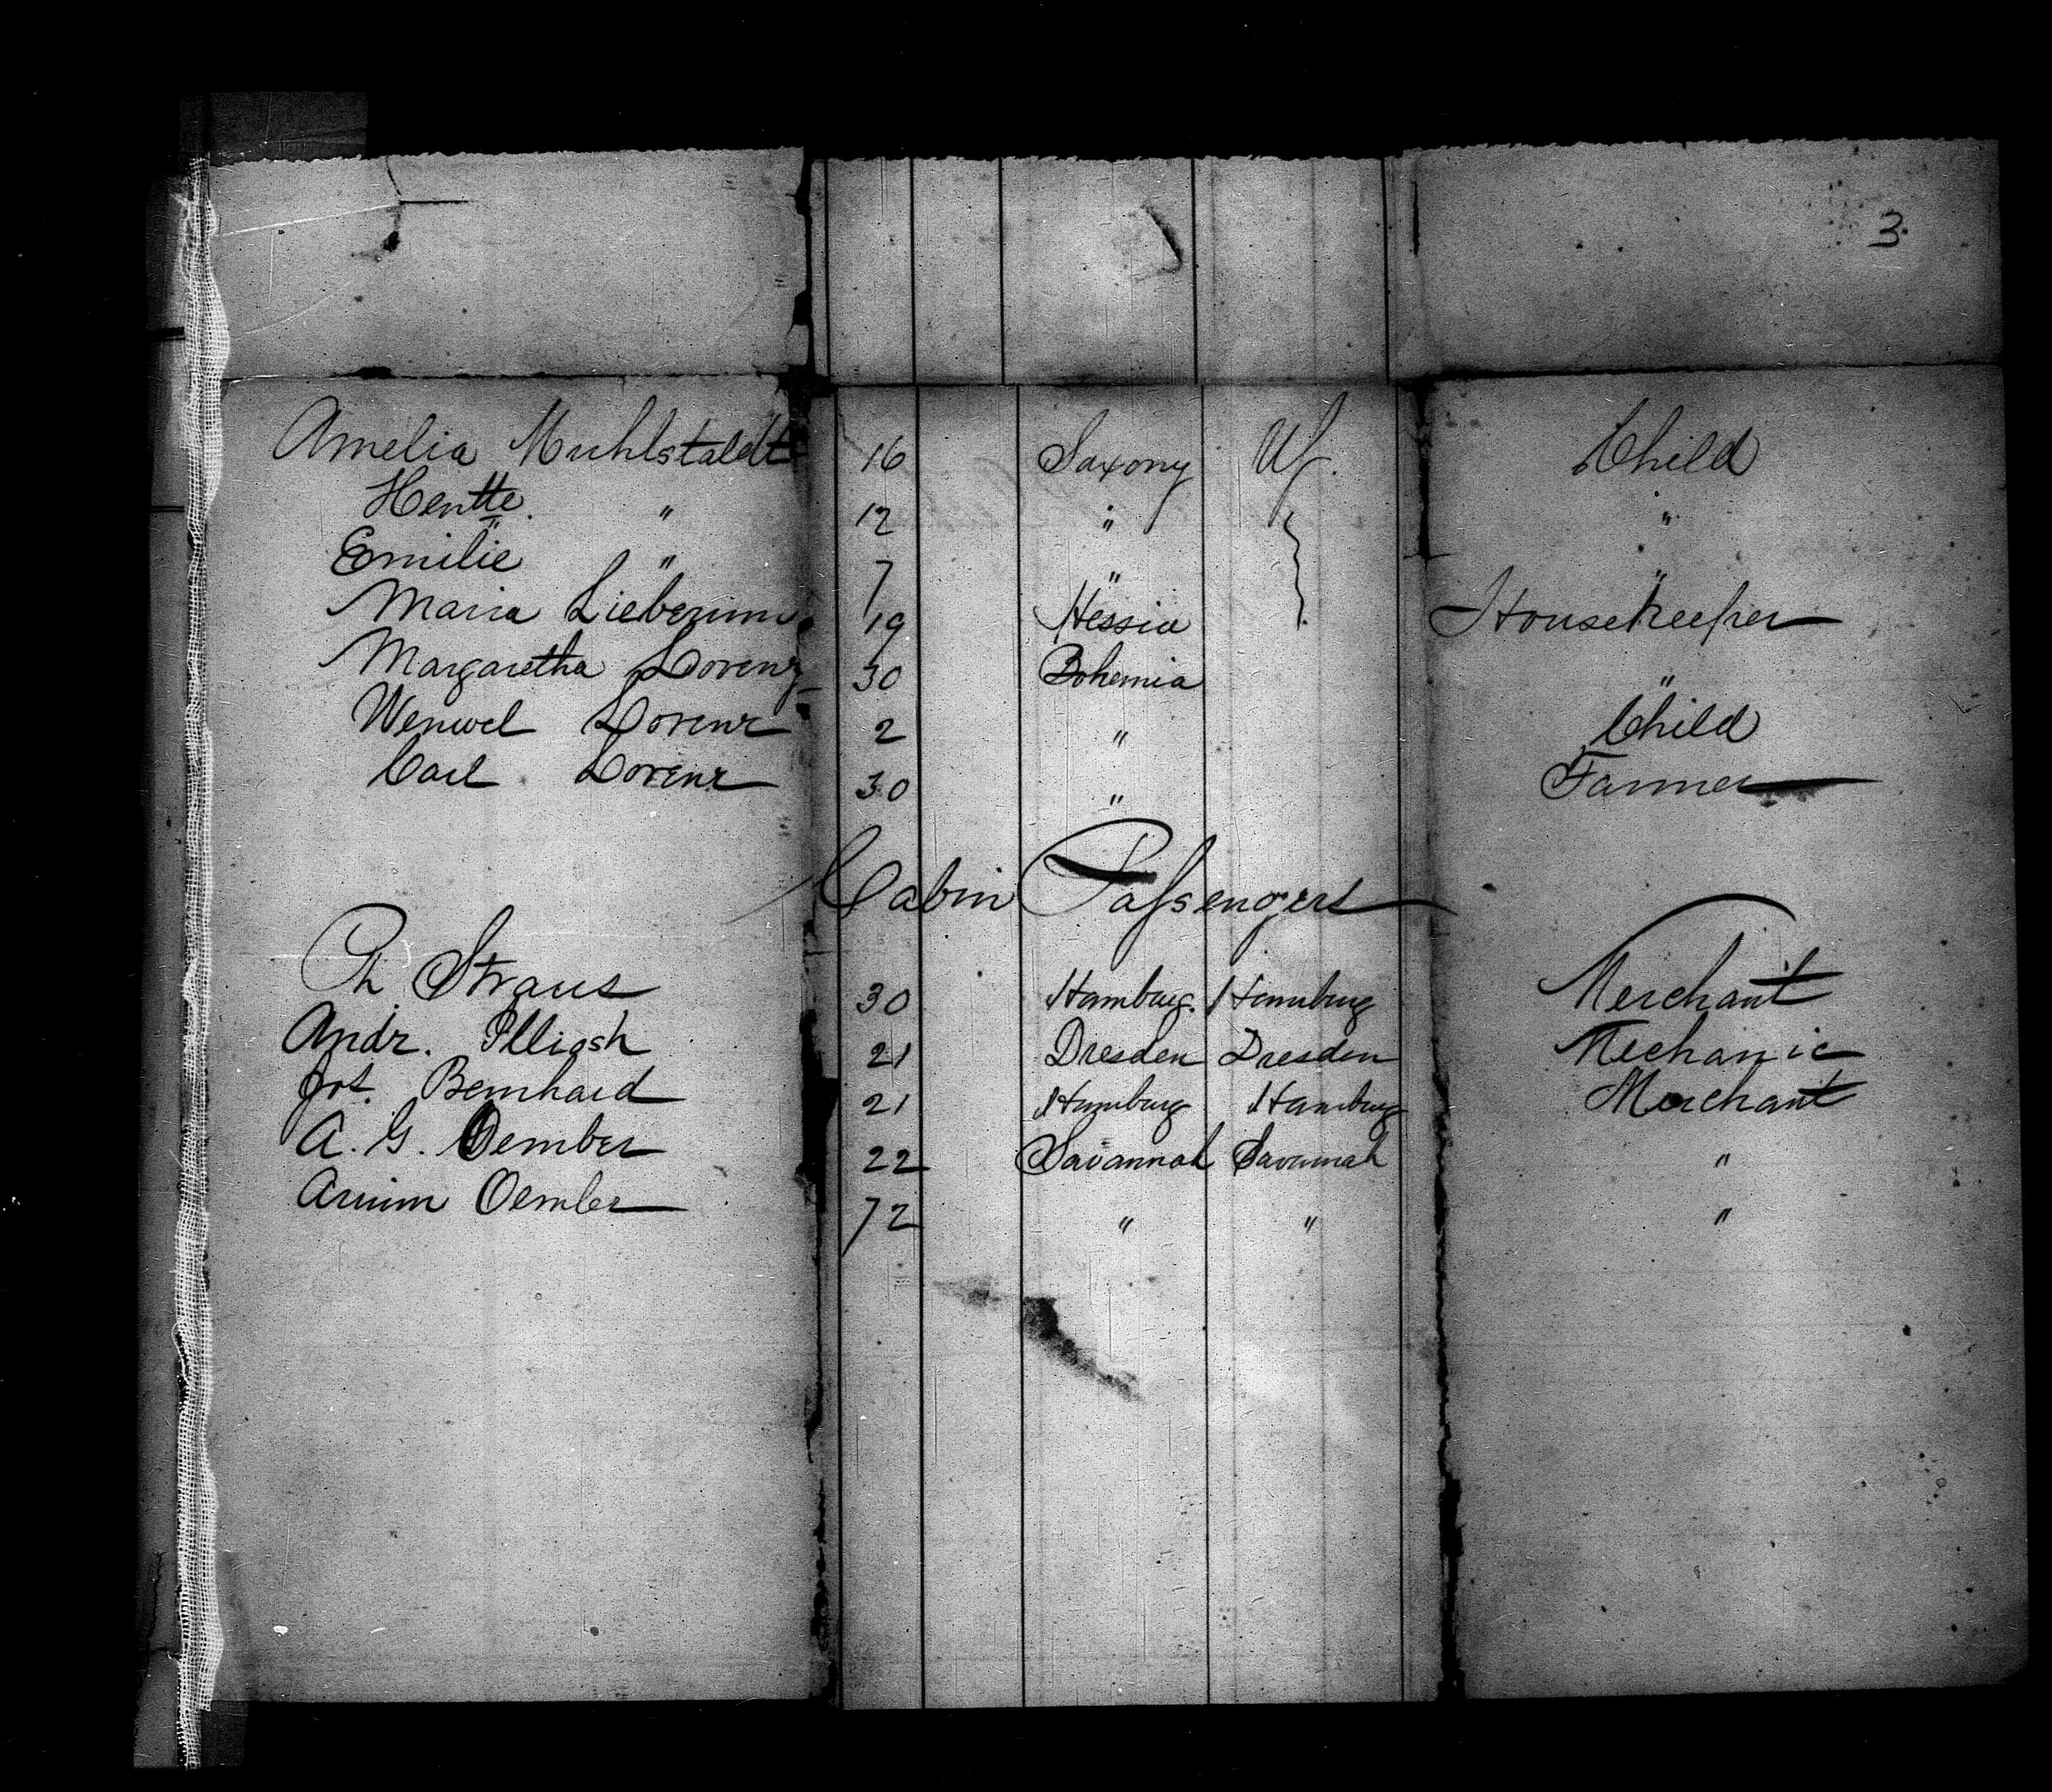 3.
Amelia Muhlstaldt 16 Saxony Child
Hentte. " 12 " "
Emilie " 7 " "
Maria 19 Hessia Housekeeper
Margaretha Lorenz 30 Bohemia "
Wenwel Lorenz 2 " Child
Carl Lorenz 30 " Farmer
Cabin Passengers
Ph Straus 30 Hamburg. Hamburg Merchant
Andr. 21 Dresden Dresden Mechanic
Jos. Bernhard 21 Hamburg Hamburg Merchant
A. G. Oember 22 Savannah Savannah "
Armin Oember 72 " " "